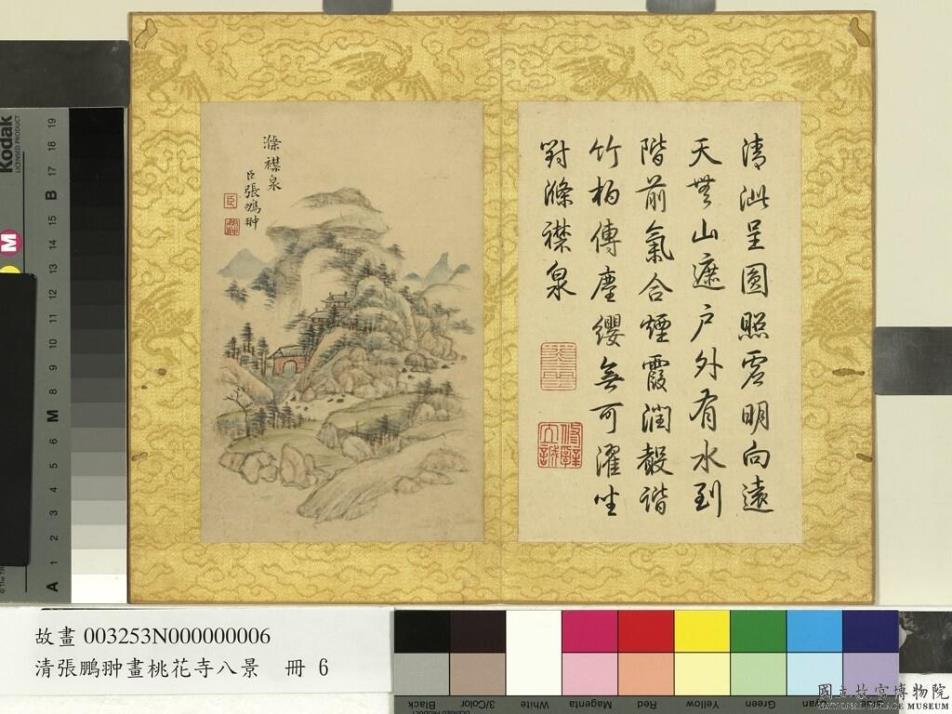 清泚呈圓照虛明向遠
天無山遮戶外有水到
階前氣合煙霞潤聲諧
竹柏傳塵纓無可濯坐
對滌襟泉
滌襟泉
臣張鵬翀
臣
Kodak
LICENSED PRODUCT
A 1 2 3 4 5 6 M 8 9 10 11 12 13 14 15 B 17 18 19
M
故畫 003253N000000006
清張鵬翀畫桃花寺八景 冊 6
Black
3/Color
White
Magenta
Red
Yellow
Green
國立故宮博物院
NATIONAL PALACE MUSEUM